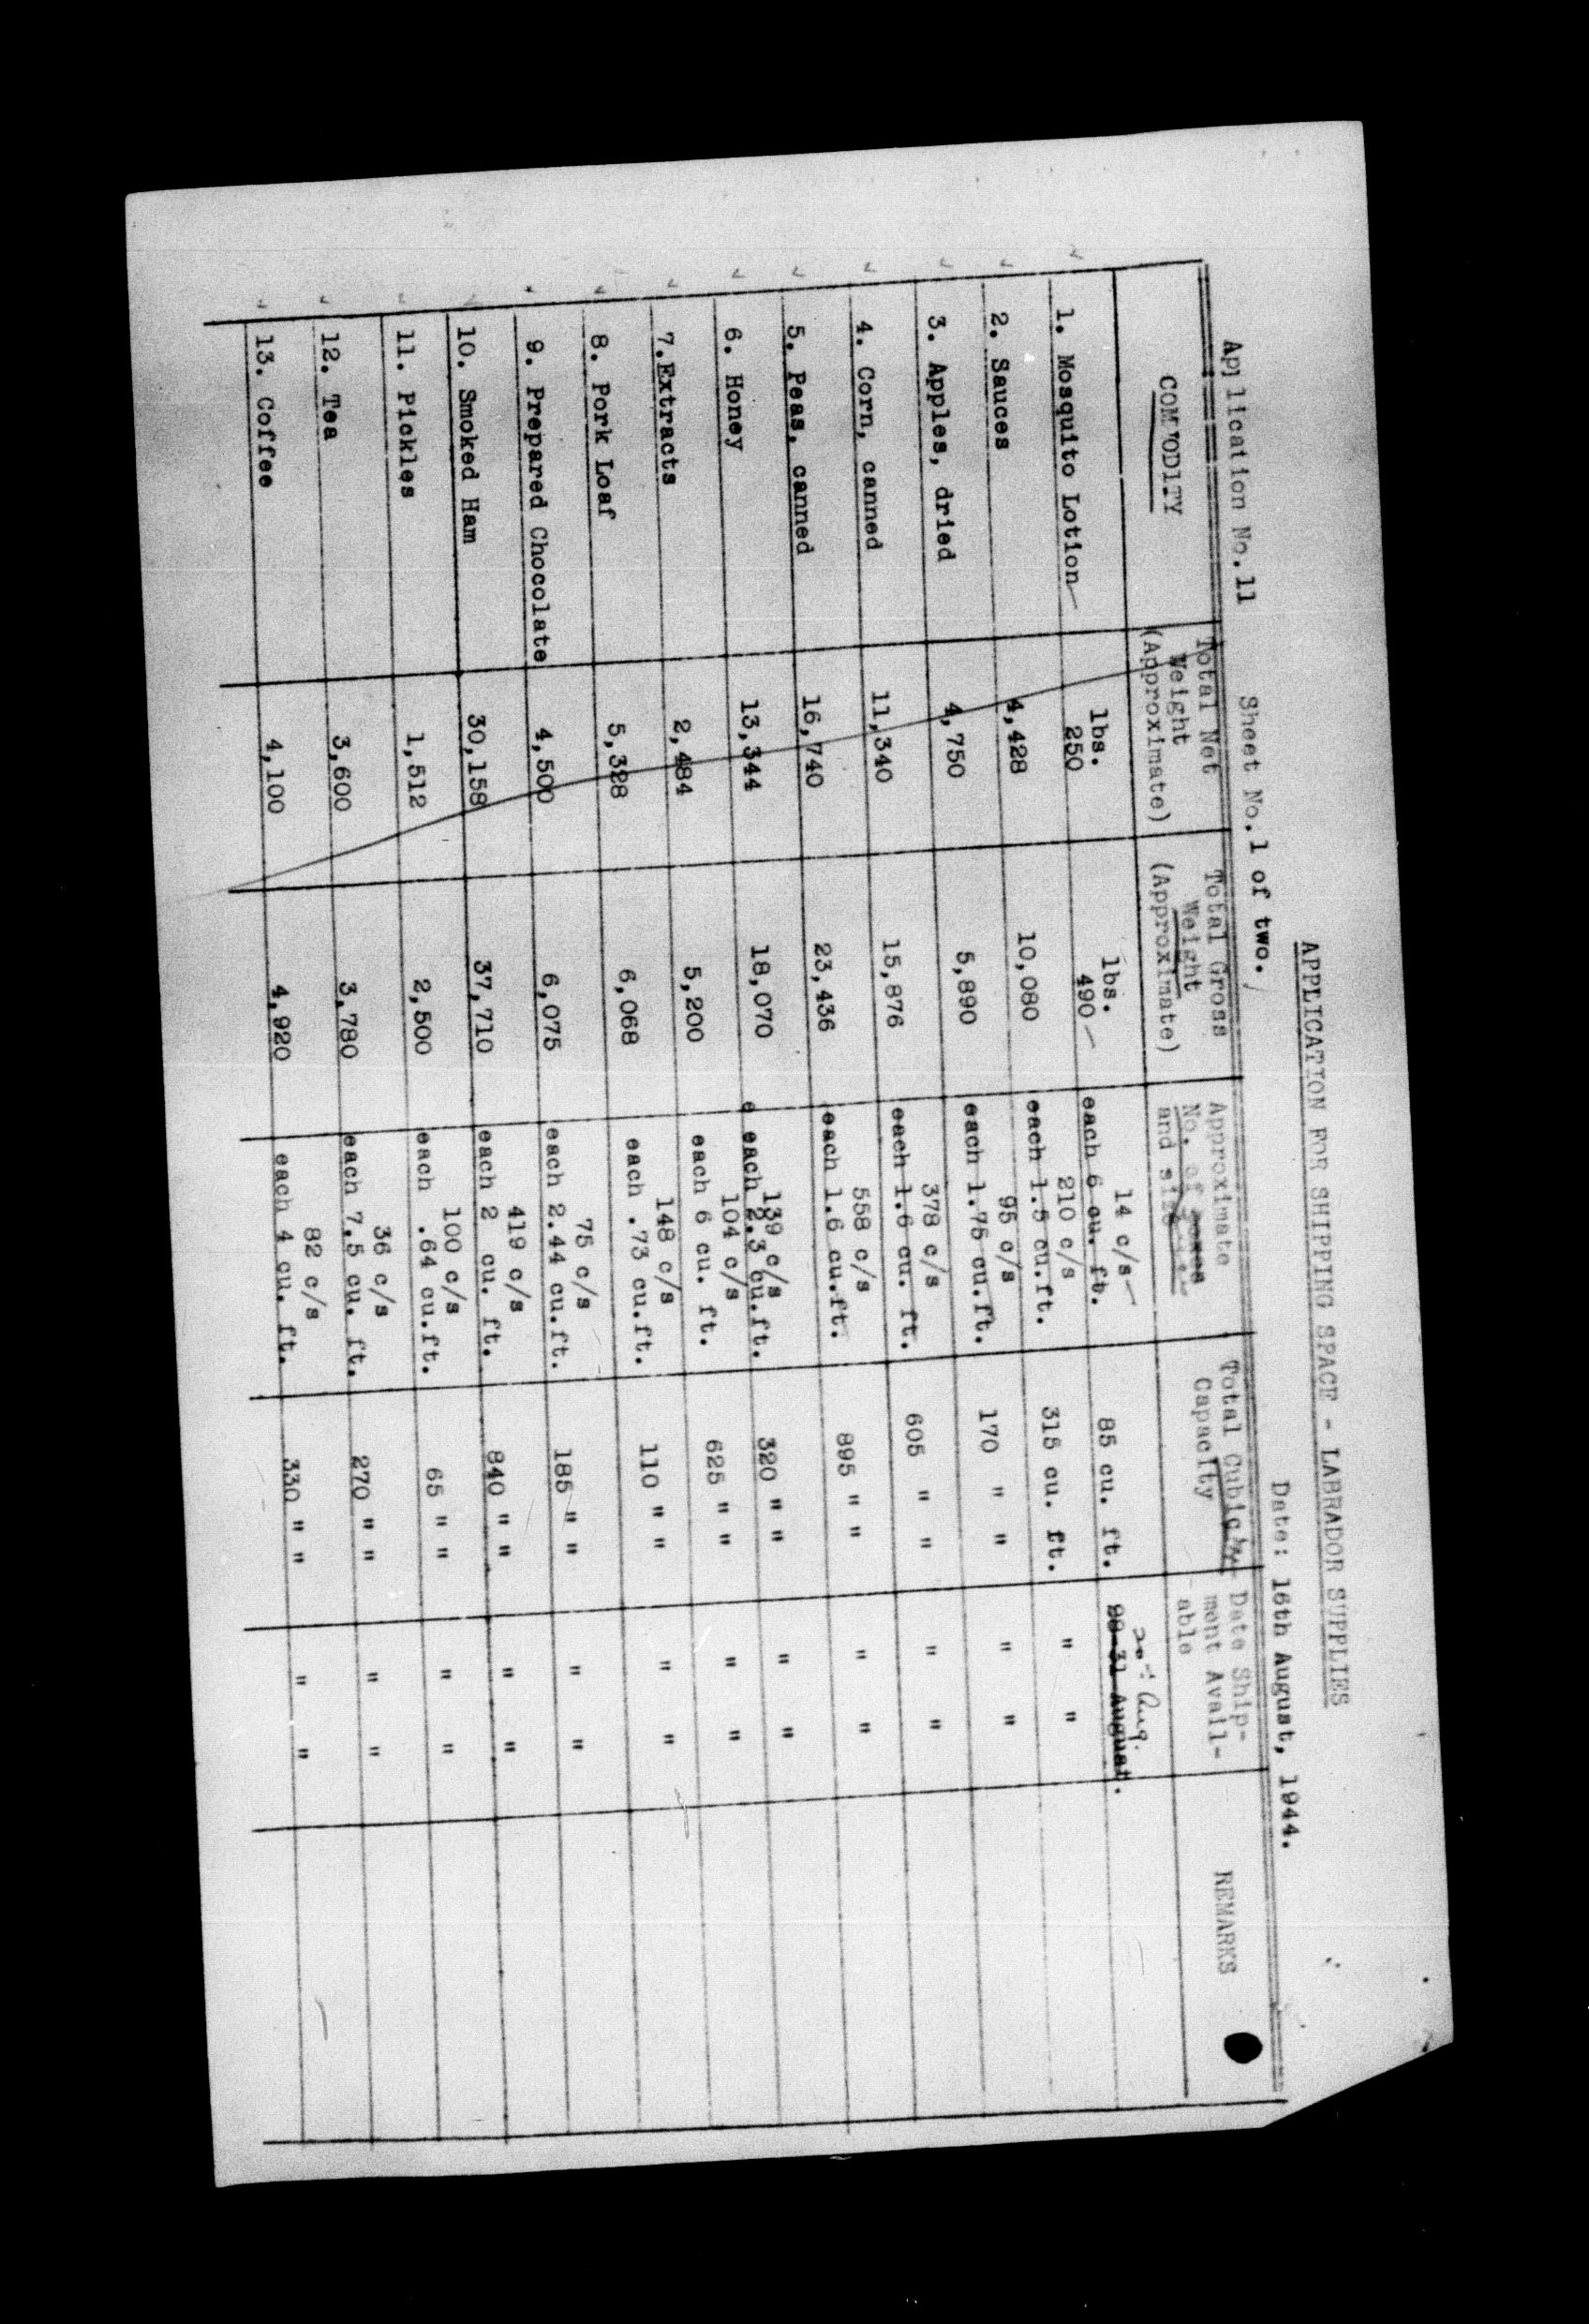 APPLICATION FOR SHIPPING SPACE - LABRADOR SUPPLIES
Date: 16th August, 1944.
Application No.11 Sheet No.1 of two.
COMMODITY
Total Net
Weight
(Approximate)
Total Gross
Weight
(Approximate)
Approximate
No. of boxes
and size
Total Cubic
Capacity
Date Ship-
ment Avail-
able
REMARKS
lbs. lbs. 14 c/s 20th Aug.
1. Mosquito Lotion 250 490 each 6 cu. ft. 85 cu. ft. 28-31 August.
210 c/s
2. Sauces 4,428 10,080 each 1.5 cu.ft. 315 cu. ft. " "
95 c/s
3. Apples, dried 4,750 5,890 each 1.75 cu.ft. 170 " " " "
378 c/s
4. Corn, canned 11,340 15,876 each 1.6 cu. ft. 605 " " " "
558 c/s
5. Peas, canned 16,740 23,436 each 1.6 cu.ft. 895 " " " "
139 c/s
6. Honey 13,344 18,070 e each 2.3 cu.ft. 320 " " " "
104 c/s
7.Extracts 2,484 5,200 each 6 cu. ft. 625 " " " "
148 c/s
8. Pork Loaf 5,328 6,068 each .73 cu.ft. 110 " " " "
75 c/s
9. Prepared Chocolate 4,500 6,075 each 2.44 cu.ft. 185 " " " "
419 c/s
10. Smoked Ham 30,158 37,710 each 2 cu. ft. 840 " " " "
100 c/s
11. Pickles 1,512 2,500 each .64 cu.ft. 65 " " " "
36 c/s
12. Tea 3,600 3,780 each 7.5 cu. ft. 270 " " " "
82 c/s
13. Coffee 4,100 4,920 each 4 cu. ft. 330 " " " "